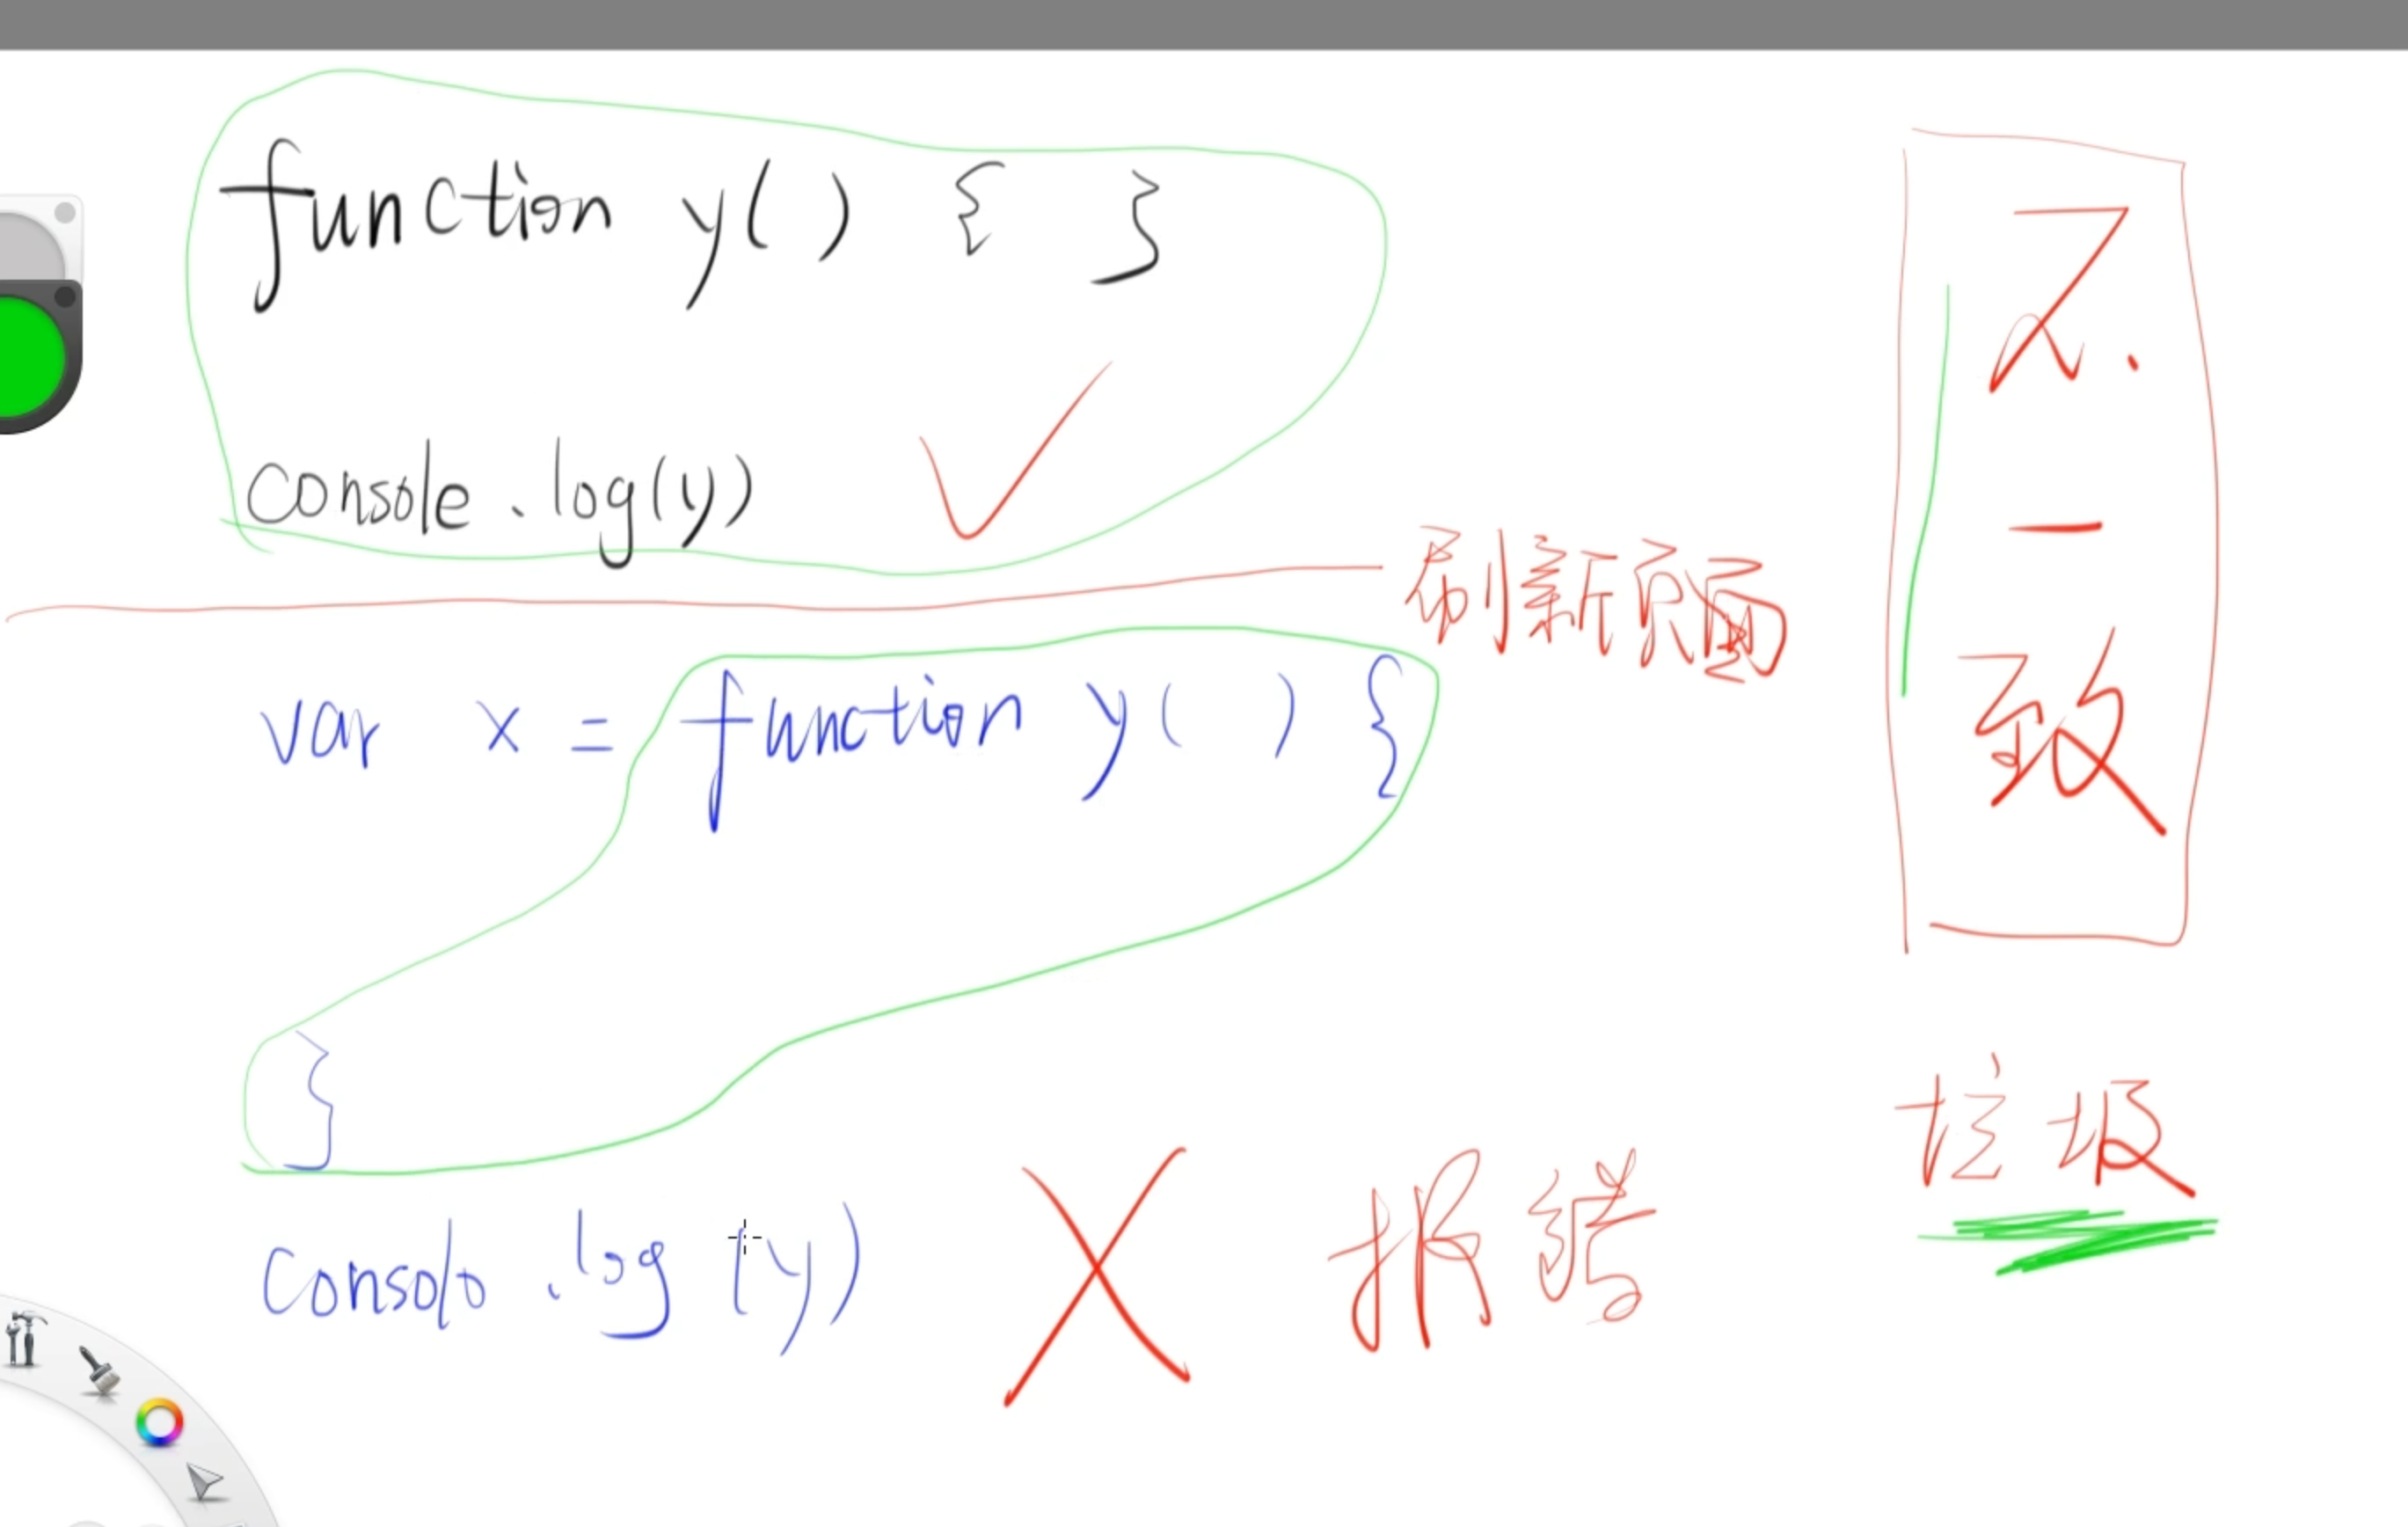 function y( ) { }
console.log(y)
刷新页面
var x = function y( ) {
}
console.log(y)
报错
不一致
垃圾